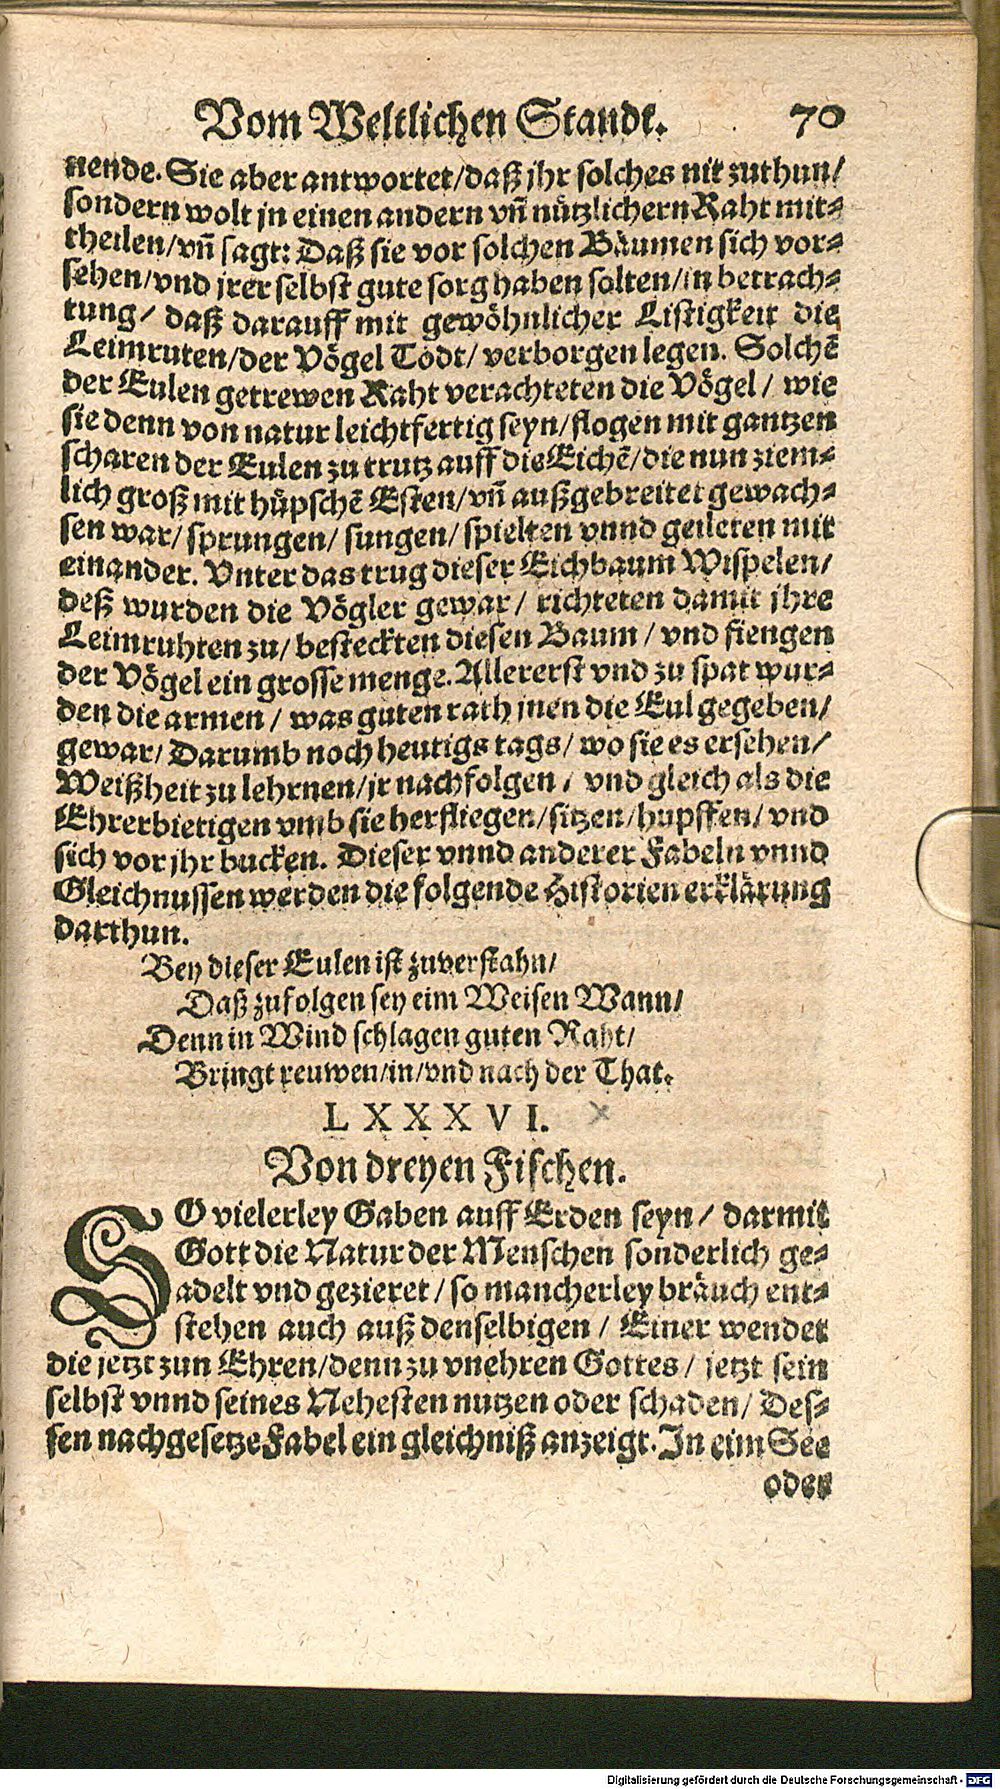 Vom Weltlichen Standt. 70
nende. Sie aber antwortet/daß jhr solches nit zuthun/
sondern wolt jn einen andern vn̄ nützlichern Raht mit⸗
theilen/vn̄ sagt: Daß sie vor solchen Bäumen sich vor⸗
sehen/vnd jrer selbst gute sorg haben solten/in betrach⸗
tung/ daß darauff mit gewöhnlicher Listigkeit die
Leimruten/der Vögel Todt/ verborgen legen. Solchē
der Eulen getrewen Raht verachteten die Vögel/ wie
sie denn von natur leichtfertig seyn/flogen mit gantzen
scharen der Eulen zu trutz auff die Eichē/die nun ziem⸗
lich groß mit hüpschē Esten/vn̄ außgebreitet gewach⸗
sen war/ sprungen/ sungen/ spielten vnnd geileten mit
einander. Vnter das trug dieser Eichbaum Wispelen/
deß wurden die Vögler gewar/ richteten damit jhre
Leimruhten zu/ besteckten diesen Baum/ vnd fiengen
der Vögel ein grosse menge. Allererst vnd zu spat wur⸗
den die armen/ was guten rath jnen die Eul gegeben/
gewar/ Darumb noch heutigs tags/ wo sie es ersehen/
Weißheit zu lehrnen/jr nachfolgen/ vnd gleich als die
Ehrerbietigen vmb sie herfliegen/sitzen/hupffen/ vnd
sich vor jhr bucken. Dieser vnnd anderer Fabeln vnnd
Gleichnussen werden die folgende Historien erklärung
darthun.
Bey dieser Eulen ist zuverstahn/
Daß zufolgen sey eim Weisen Mann/
Denn in Wind schlagen guten Raht/
Bringt reuwen/in/vnd nach der That.
LXXXVI.
Von dreyen Fischen.
SO vielerley Gaben auff Erden seyn/ darmit
Gott die Natur der Menschen sonderlich ge⸗
adelt vnd gezieret/ so mancherley bräuch ent⸗
stehen auch auß denselbigen/ Einer wendet
die jetzt zun Ehren/denn zu vnehren Gottes/ jetzt sein
selbst vnnd seines Nehesten nutzen oder schaden/ Des⸗
sen nachgesetze Fabel ein gleichniß anzeigt. In eim See
oder
Digitalisierung gefördert durch die Deutsche Forschungsgemeinschaft - DFG